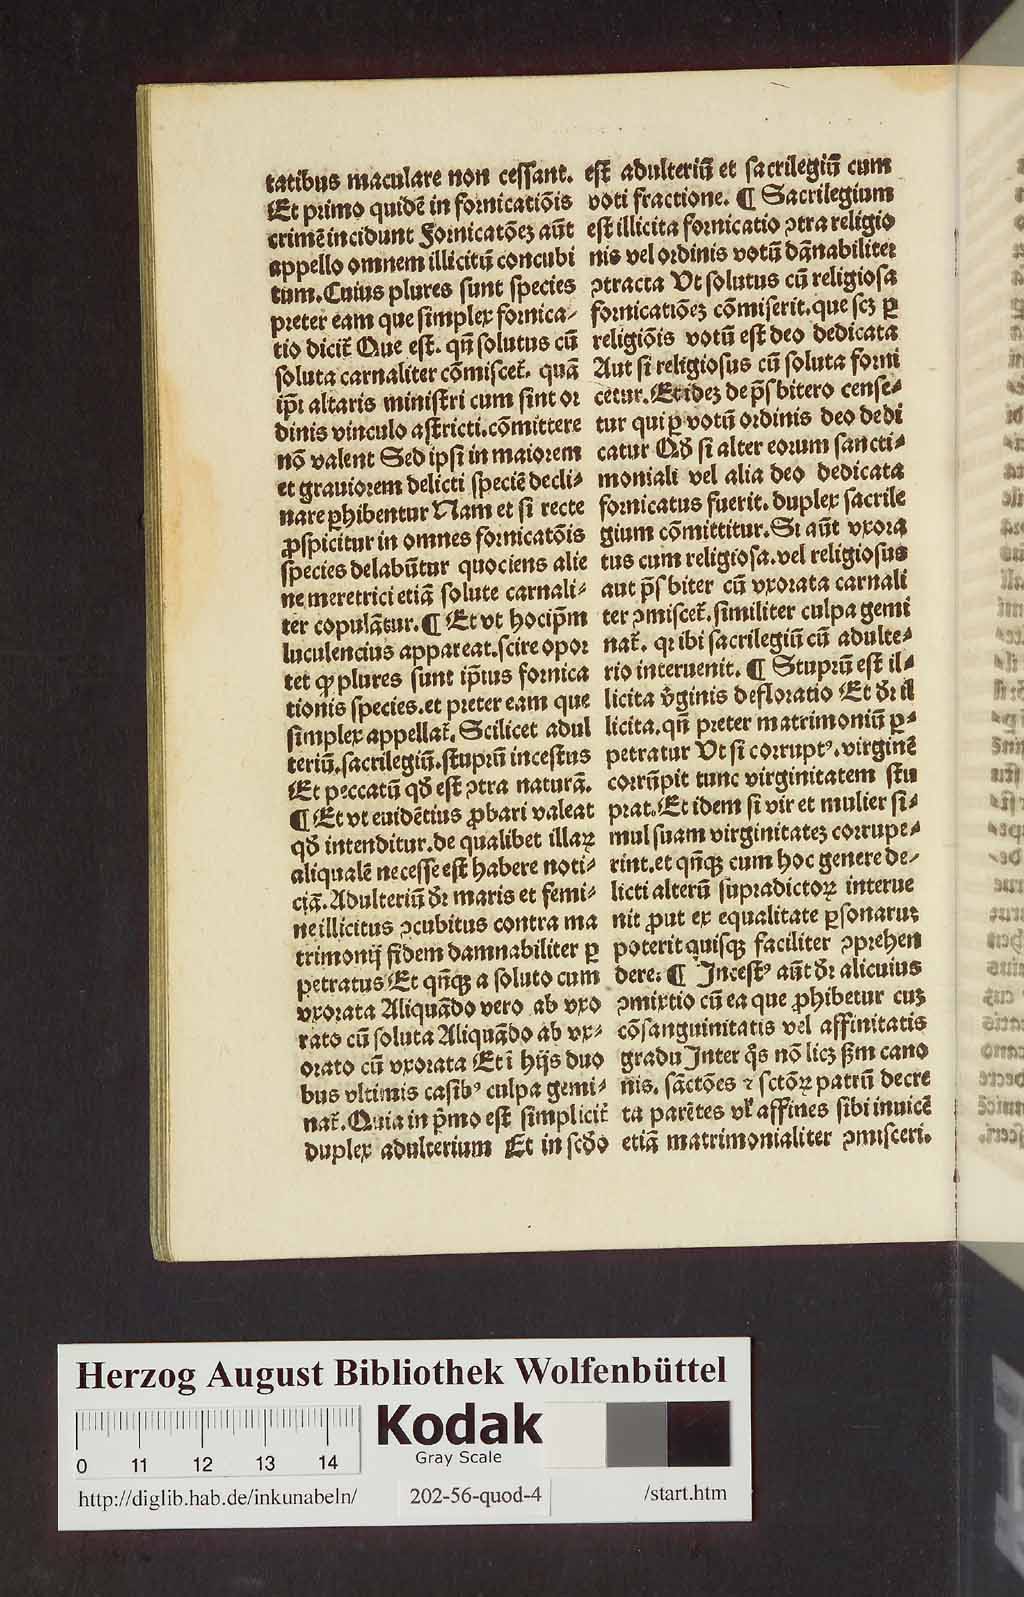 tatibus maculare non cessant.
Et primo quidē in fornicatiōis
crimē incidunt Fornicatōeꝫ aūt
appello omnem illicitū concubi
tum. Cuius plures sunt species
preter eam que simplex fornica⸗
tio dicit᷑ Que est. qn̄ solutus cū
soluta carnaliter cōmiscet᷑. quā
ip̄i altaris ministri cum sint or
dinis vinculo astricti. cōmittere
nō valent Sed ipsi in maiorem
et grauiorem delicti speciē decli⸗
nare ꝓhibentur Nam et si recte
ꝓspicitur in omnes fornicatōis
species delabūtur quociens alie
ne meretrici etiā solute carnali⸗
ter copulātur. ¶ Et vt hoc ip̄m
luculencius appareat. scire opor
tet ꝙ plures sunt ip̄ius fornica
tionis species. et preter eam que
simplex appellat᷑. Scilicet adul
teriū. sacrilegiū. stuprū incestus
Et peccatū qđ est ꝯtra naturā.
¶ Et vt euidētius ꝓbari valeat
qđ intenditur. de qualibet illaꝝ
aliqualē necesse est habere noti⸗
ciā. Adulteriū đr maris et femi⸗
ne illicitus ꝯcubitus contra ma
trimonij fidem damnabiliter ꝑ
petratus Et qn̄qꝫ a soluto cum
vxorata Aliquādo vero ab vxo
rato cū soluta Aliquādo ab vx⸗
orato cū vxorata Et ī hijs duo
bus vltimis casibꝰ culpa gemi⸗
nat᷑. Quia in p̄mo est simplicit᷑
duplex adulterium Et in scđo
est adulteriū et sacrilegiū cum
voti fractione. ¶ Sacrilegium
est illicita fornicatio ꝯtra religio
nis vel ordinis votū dānabiliter
ꝯtracta Vt solutus cū religiosa
fornicatiōeꝫ cōmiserit. que scꝫ ꝑ
religiōis votū est deo dedicata
Aut si religiosus cū soluta forni
cetur. Et ideꝫ de p̄sbitero cense⸗
tur qui ꝑ votū ordinis deo dedi
catur Qđ si alter eorum sancti⸗
moniali vel alia deo dedicata
fornicatus fuerit. duplex sacrile
gium cōmittitur. Si aūt vxora
tus cum religiosa. vel religiosus
aut p̄sbiter cū vxorata carnali
ter ꝯmiscet᷑. similiter culpa gemi
nat᷑. qr ibi sacrilegiū cū adulte⸗
rio interuenit. ¶ Stuprū est il⸗
licita v̄ginis defloratio Et đr il
licita. qn̄ preter matrimoniū ꝑ⸗
petratur Vt si corruptꝰ. virginē
corrūpit tunc virginitatem stu
prat. Et idem si vir et mulier si⸗
mul suam virginitateꝫ corrupe⸗
rint. et qn̄qꝫ cum hoc genere de⸗
licti alterū supradictoꝝ interue
nit ꝓut ex equalitate ꝑsonaruꝫ
poterit quisqꝫ faciliter ꝯprehen
dere. ¶ Incestꝰ aūt đr alicuius
ꝯmixtio cū ea que ꝓhibetur cuꝫ
cōsanguinitatis vel affinitatis
gradu Inter q̊s nō licꝫ ẜm cano
nis. sāctōes ⁊ sctōꝝ patrū decre
ta parētes vl᷑ affines sibi inuicē
etiā matrimonialiter ꝯmisceri.
Herzog August Bibliothek Wolfenbüttel
0 11 12 13 14
Kodak
Gray Scale
http://diglib.hab.de/inkunabeln/ 202-56-quod-4 /start.htm